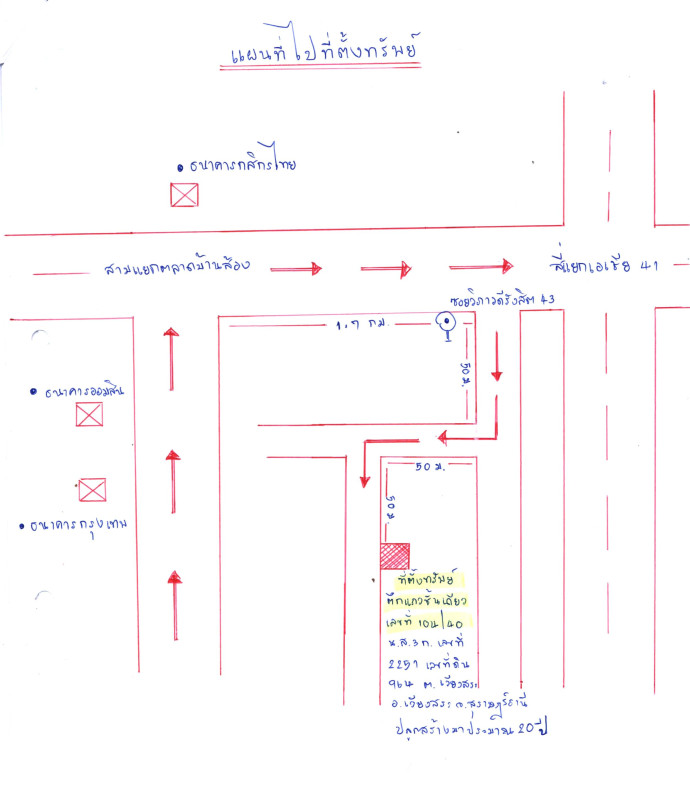 แผนที่ไปที่ตั้งทรัพย์
ธนาคารกสิกรไทย
สามแยกตลาดบ้านส้อง
สี่แยกเอเชีย 41
ซอยวิภาวดีรังสิต 43
1.7 กม.
50 ม.
ธนาคารออมสิน
50 ม.
50 ม.
ธนาคารกรุงเทพ
ที่ตั้งทรัพย์
ตึกแถวชั้นเดียว
เลขที่ 104/40
น.ส.3 ก. เลขที่
2251 เลขที่ดิน
964 ต. เวียงสระ
อ.เวียงสระ จ.สุราษฎร์ธานี
ปลูกสร้างมาประมาณ 20 ปี